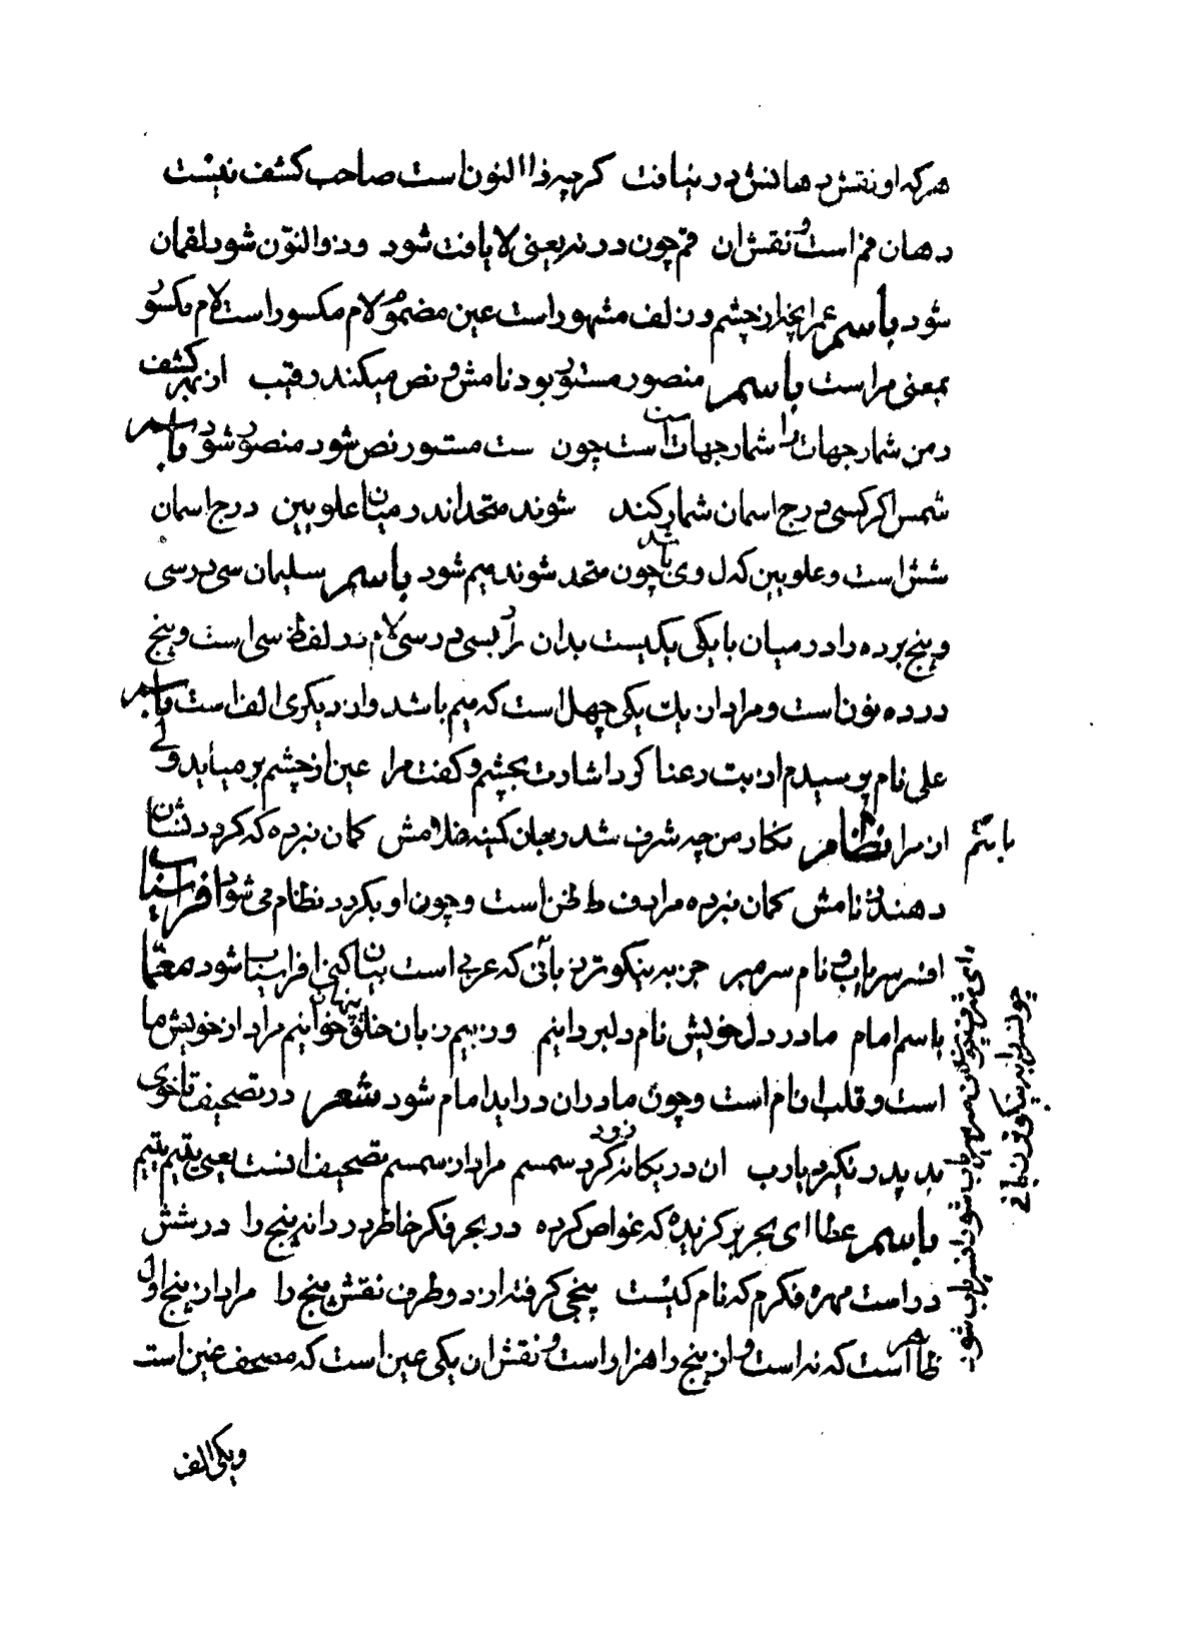 هرکه او نقش دهانش در نیافت کرچه ذا النون است صاحب کشف نیست
دهان فم است و نقش ان قم چون در نه یعنی لا یافت شود و ذوالنون شود لقمان
شود باسم عمر انچه از چشم و زلف مشهور است عین مضموم لام مکسور است لام مکسور
بمعنی مر است باسم منصور مستور بود نامش و نص میکند رقیب از بهر کشف
رمن شمار جهات را شمار جهات ست است چون ست مستور نص شود منصور شود باسم
شمس اکر کسی درج اسمان شمار کند شوند متحد اندر میان علویین درج اسمان
شش است و علویین که ل وی باشد چون متحد شوند میم شود باسم سلیمان سی در سی
و پنج بر ده را در میان با یکی یکیست بدان را بسی در سی لام در لفظ سی است و پنج
در ده نون است و مراد از یك یکی چهل است که میم باشد و از دیکری الف است باسم
علی نام پرسیدم از بت رعنا کرد اشارت بچشم و کفت مرا عین از چشم بر میاید ولی
از مرا نظام نکار من چه شرف شد ز بجان کینه غلامش کمان نبرده که کردد نشان
باسم
دهنده نامش کمان نبرده مرادف ط ظن است و چون او بکردد نظام می شود افراسیاب
افسر سراب و نام سر مهر جز به نیکوترین بانی که عربی است بیان کنی افراسیاب شود معما
باسم امام مادر دل خویش نام دلبر دانیم وز بیم زبان خلق پنهان خوانیم مراد از خویش ما
است و قلب ان ام است و چون مادران در اید امام شود شعر در تصحیف تا خوی
بد پدر نکیرد یارب ان در یکانه زود کرد سمسم مراد از سمسم تصحیف انست یعنی یتیم یتیم
باسم عطا ای بحر پر کزیده که غواص کرده در بحر فکر خاطر در دانه پنج را در شش
در است مهره فکرم که نام کیست پنجی کرفته از دو طرف نقش پنج را مراد از پنج اول
ظاهر است که نه است و از پنج را هزار است و نقش ان یکی عین است که مصحف غین است
ویکی الف